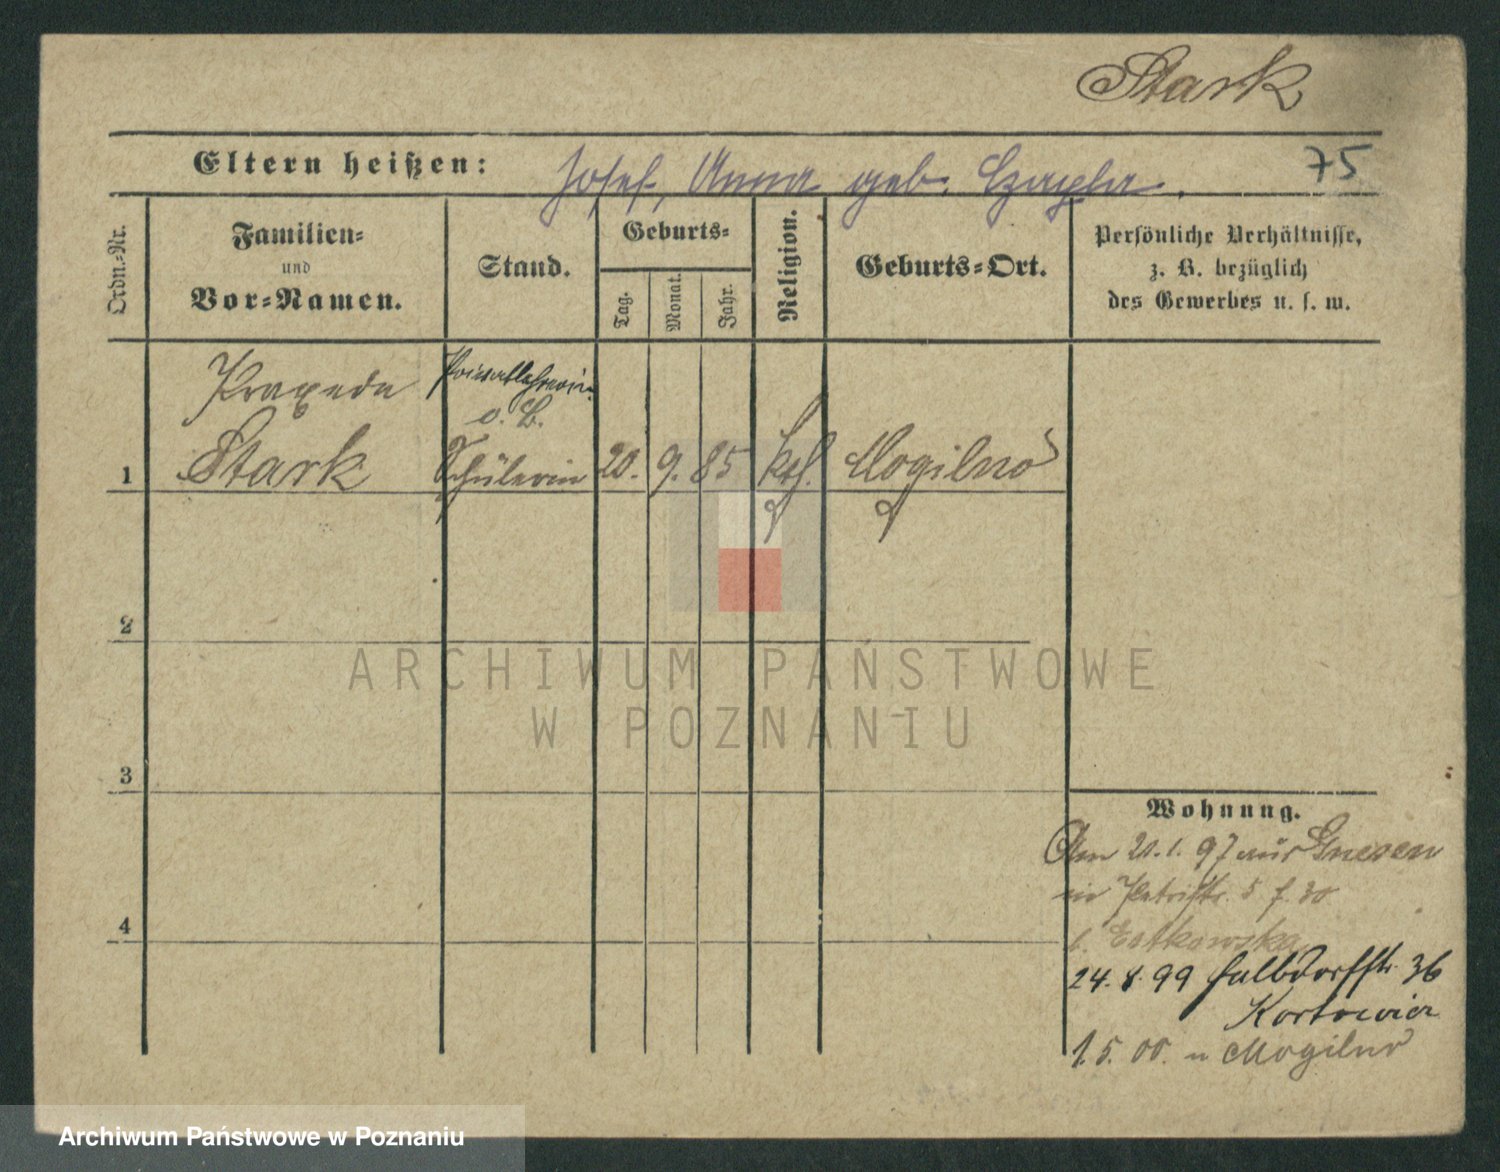 Stark
Eltern heißen: Josef, Anna geb. Czapla.
75
Ordn.-Nr.
Familien-
und
Vor-Namen.
Stand.
Geburts-
Tag.
Monat.
Jahr.
Religion.
Geburts-Ort.
Persönliche Verhältnisse,
z. B. bezüglich
des Gewerbes u. s. w.
Praxeda
Privatlehrerin
o. B.
1 Stark Schülerin 20. 9. 85 kth. Mogilno
2
ARCHIWUM PAŃSTWOWE
W POZNANIU
3
4
Wohnung.
Am 20.1.97 aus Gnesen
in Petristr. 5
24.8.99 Halbdorfstr. 36
1.5.00. n Mogilno
Archiwum Państwowe w Poznaniu